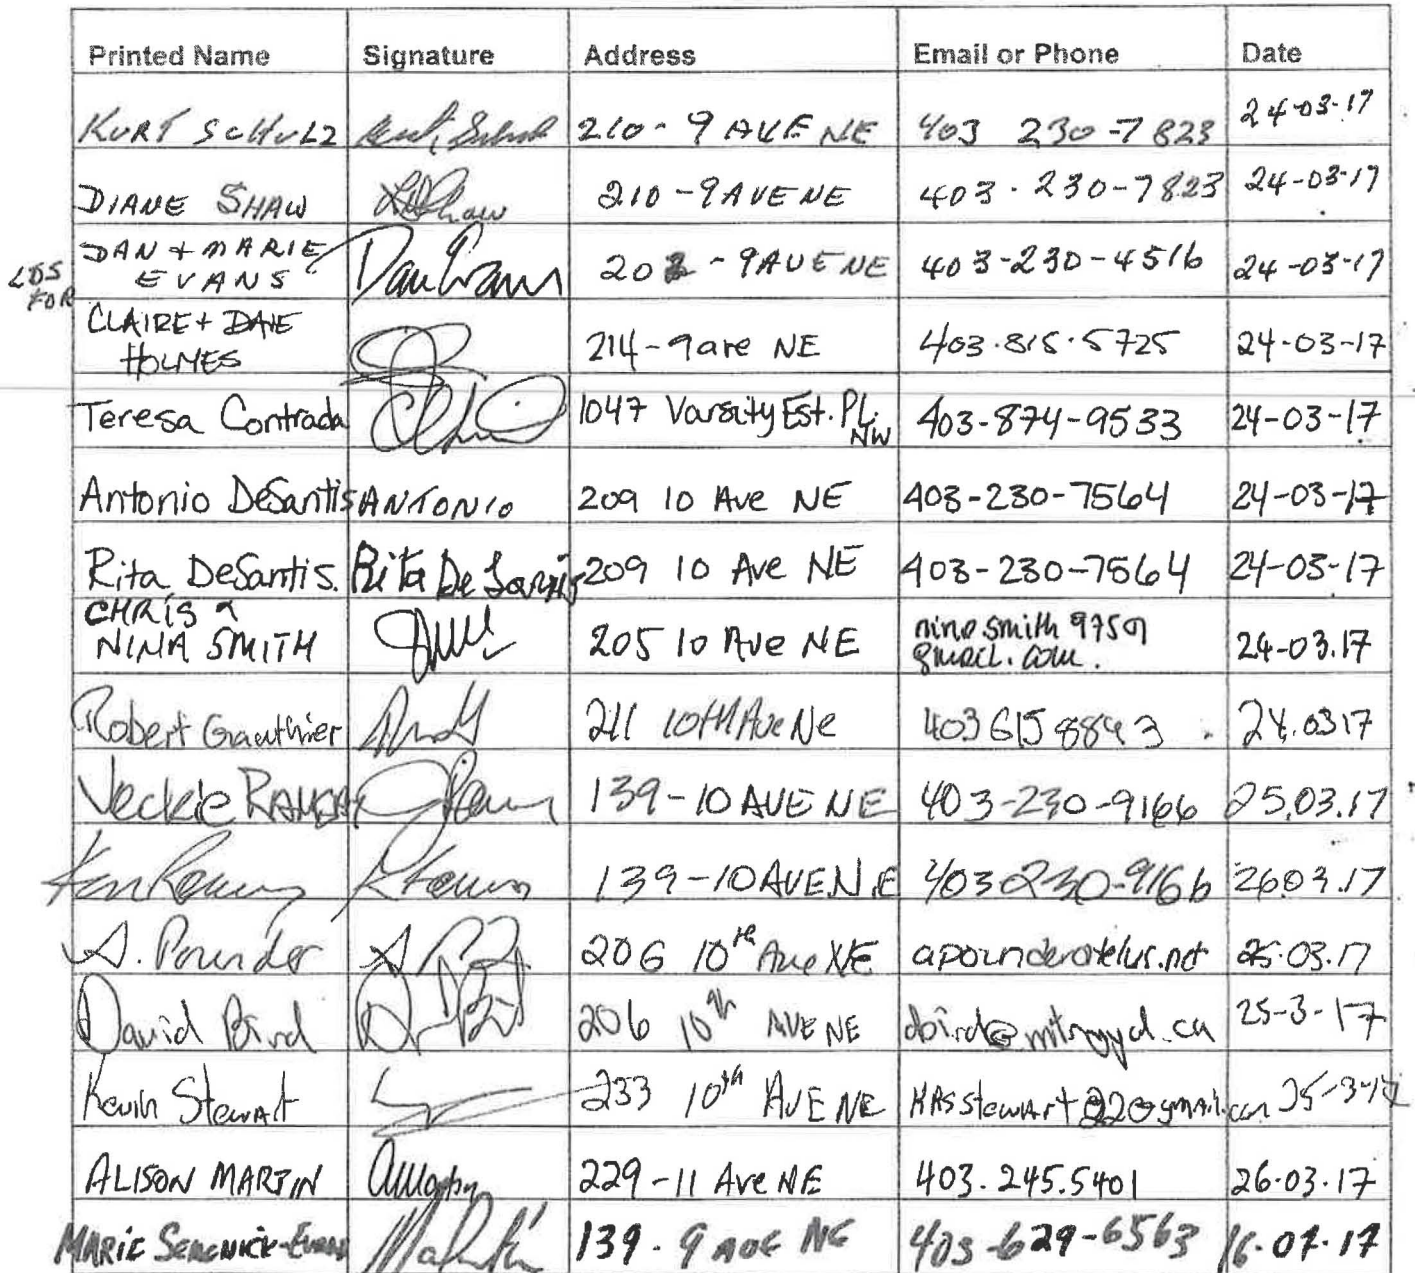 Printed Name Signature Address Email or Phone Date
KURT SCHULZ 210 - 9 AVE NE 403 230-7823 24-03-17
DIANE SHAW 210-9 AVE NE 403.230-7823 24-03-17
DAN + MARIE
EVANS Dan Evans - 9 AVE NE 403-230-4516 24-03-17
FOR
CLAIRE + DAVE
HOLMES 214-9 ave NE 403.815.5725 24-03-17
Teresa Contrada 1047 Varsity Est. PL. NW 403-874-9533 24-03-17
Antonio DeSantis ANTONIO 209 10 Ave NE 403-230-7564 24-03-17
Rita DeSantis. Rita De Santis 209 10 Ave NE 403-230-7564 24-03-17
CHRIS &
NINA SMITH 205 10 Ave NE nina smith 975@
gmail.com. 24-03.17
Robert Gauthier 211 10TH Ave Ne 403 615 8843 24.03 17
139-10 AVE NE 403-230-9166 25.03.17
139-10 AVE N.E 403 230-9166 26 03.17
A. Pounder 206 10th Ave NE apounder@telus.net 25.03.17
David Bird 206 10th AVE NE 25-3-17
Kevin Stewart 233 10th AVE NE 25-3-17
ALISON MARTIN 229-11 Ave NE 403.245.5401 26.03.17
MARIE 139. 9 AVE NE 403-629-6563 16.07.17